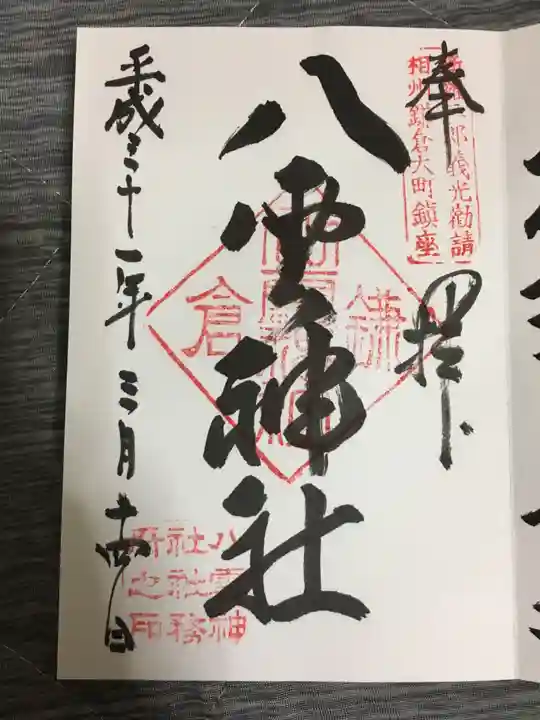 奉拝
新羅三郎義光勧請
相州鎌倉大町鎮座
八雲神社
鎌倉
八雲神
社社務
所之印
平成三十一年三月十四日